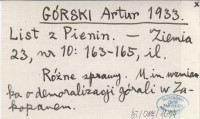 GÓRSKI Artur 1933.
List z Pienin. — Ziemia
23, nr 10: 163-165, il.
Różne sprawy. M.in. wzmian-
ka o demoralizacji górali w Za-
kopanem.